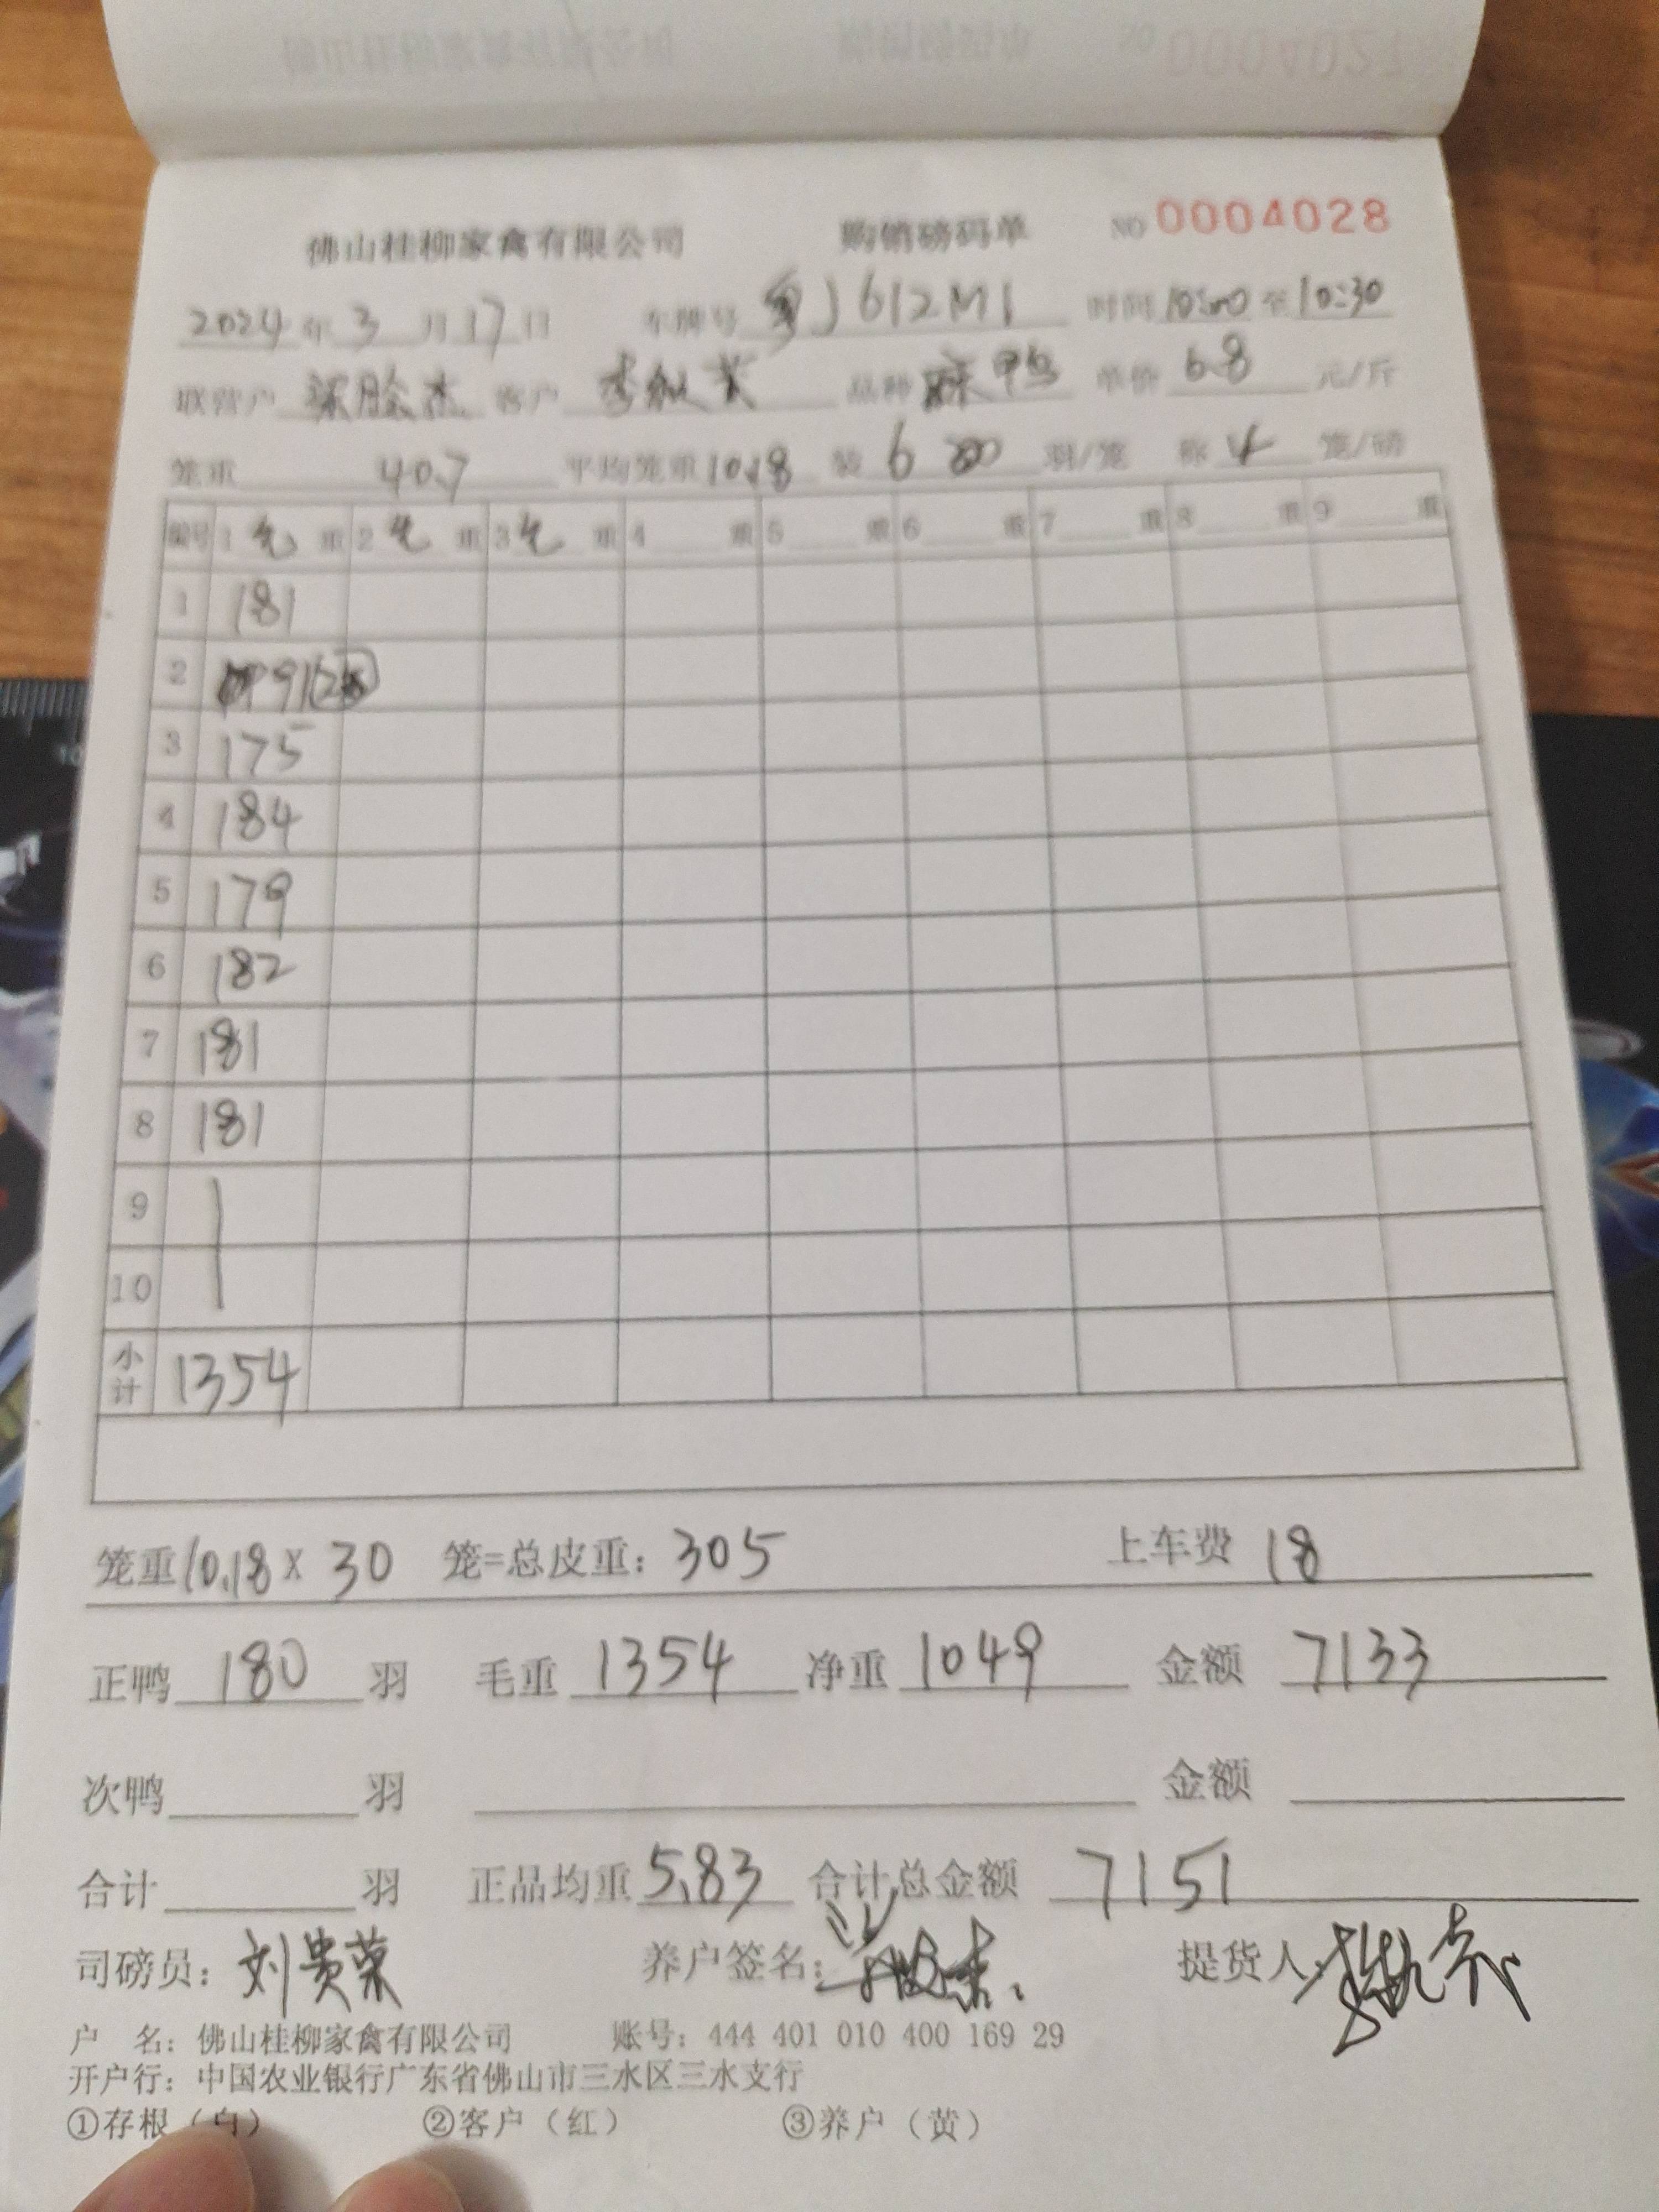 佛山桂柳家禽有限公司 购销磅码单 NO 0004028
2024年3月17日 车牌号 粤J612M1 时间10:00至10:30
联营户 客户 品种 麻鸭 单价 6.8 元/斤
笼重 40.7 平均笼重10.18 装 6 羽/笼 称 4 笼/磅
编号 1 毛 重 2 毛 重 3 毛 重 4 重 5 重 6 重 7 重 8 重 9 重
1 181
2 91
3 175
4 184
5 179
6 182
7 181
8 181
9
10
小计 1354
笼重10.18 x 30 笼=总皮重: 305 上车费 18
正鸭 180 羽 毛重 1354 净重 1049 金额 7133
次鸭 羽 金额
合计 羽 正品均重 5.83 合计总金额 7151
司磅员: 刘贵荣 养户签名: 提货人:
户 名: 佛山桂柳家禽有限公司 账号: 444 401 010 400 169 29
开户行: 中国农业银行广东省佛山市三水区三水支行
①存根（白） ②客户（红） ③养户（黄）